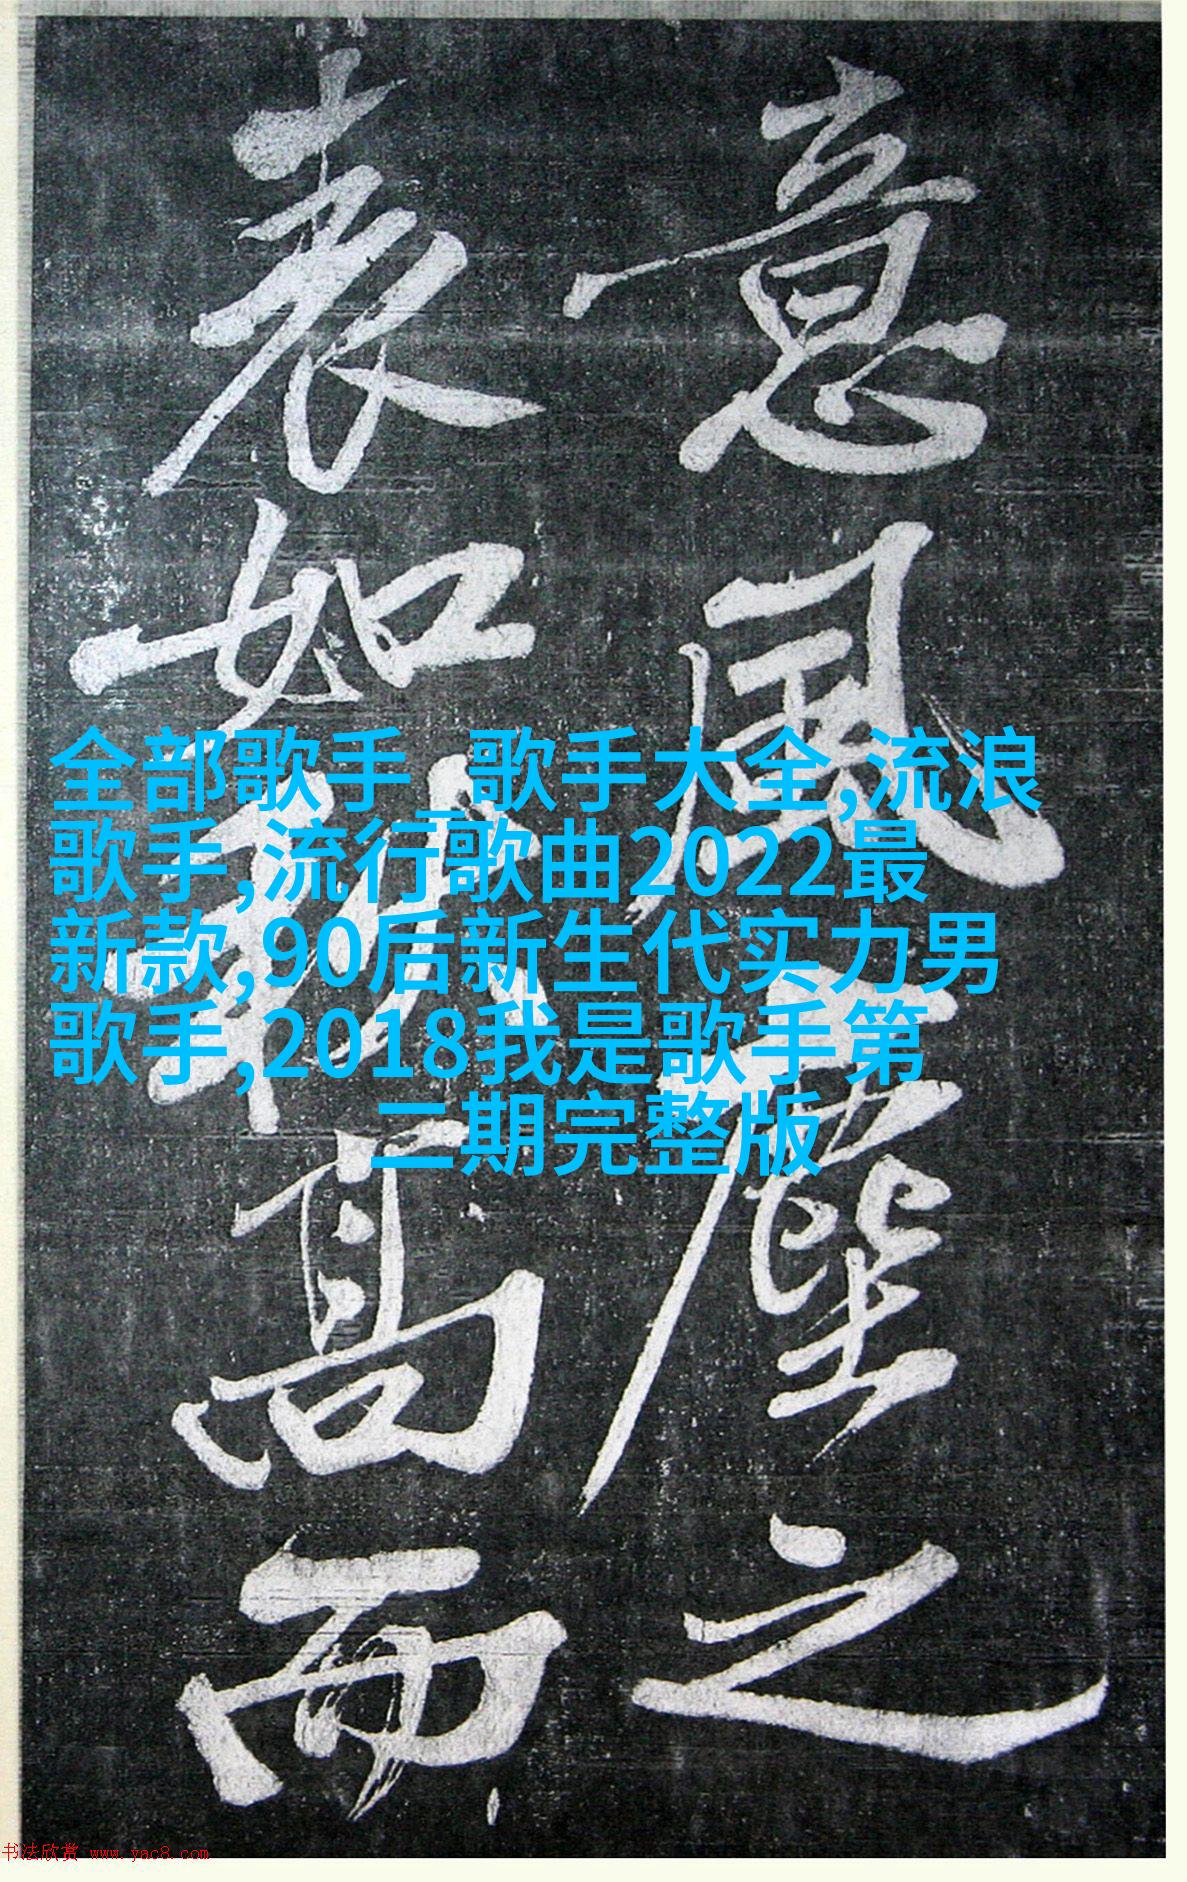 意風塵之
表如高而
全部歌手_歌手大全,流浪
歌手,流行歌曲2022最
新款,90后新生代实力男
歌手,2018我是歌手第
二期完整版
书法欣赏 www.yac8.com